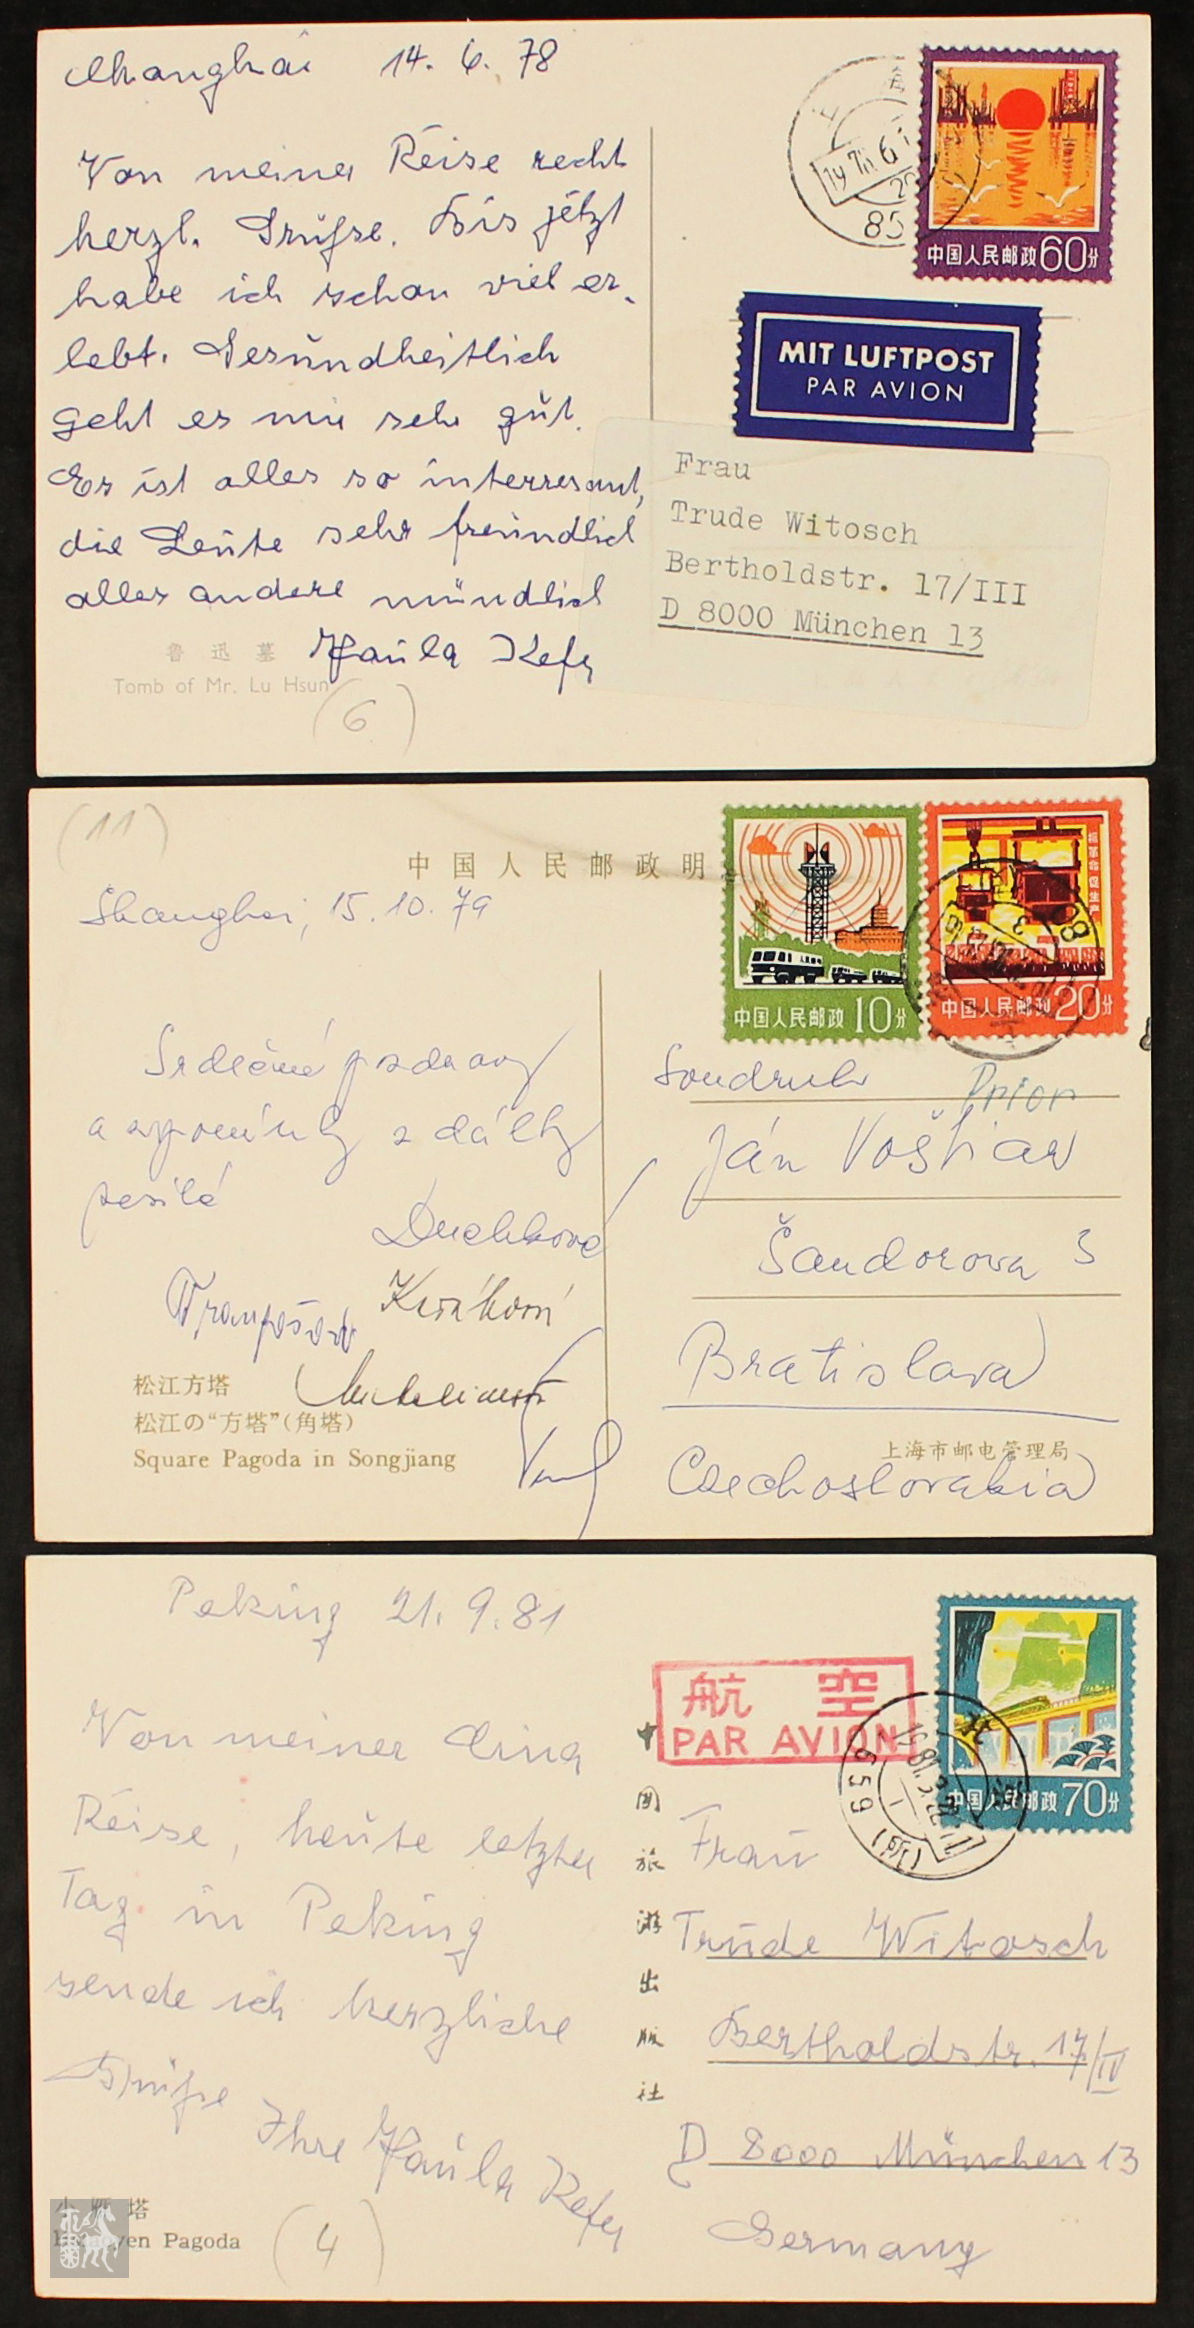 Shanghai 14. 6. 78
Von meiner Reise recht
herzl. Grüße. Bis jetzt
habe ich schon viel er-
lebt. Gesundheitlich
geht es mir sehr gut.
Es ist alles so interresant,
die Leute sehr freundlich
alles andere mündlich
Paula Kefer
鲁迅墓
Tomb of Mr. Lu Hsun
(6)
上海
85
中国人民邮政60分
MIT LUFTPOST
PAR AVION
Frau
Trude Witosch
Bertholdstr. 17/III
D 8000 München 13
(11)
中国人民邮政明
Shanghai, 15.10.79
Srdečné pozdravy
a vzpomínky z dálky
posílá
松江方塔
松江の“方塔”(角塔)
Square Pagoda in Songjiang
中国人民邮政10分
抓革命促生产
中国人民邮政20分
Soudruh
Prior
Ján Voštiar
Šandorova 3
Bratislava
上海市邮电管理局
Czechoslovakia
Peking 21. 9. 81
Von meiner China
Reise, heute letzter
Tag in Peking
sende ich herzliche
Grüße
Ihre Paula Kefer
小雁塔
yen Pagoda
(4)
航空
PAR AVION
中国旅游出版社
中国人民邮政70分
北京
Frau
Trude Witosch
Bertholdstr. 17/IV
D 8000 München 13
Germany